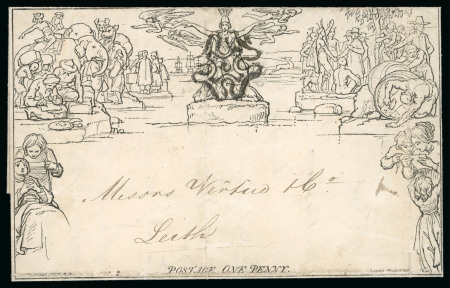 Messrs Virtue & Co
Leith
POSTAGE ONE PENNY.